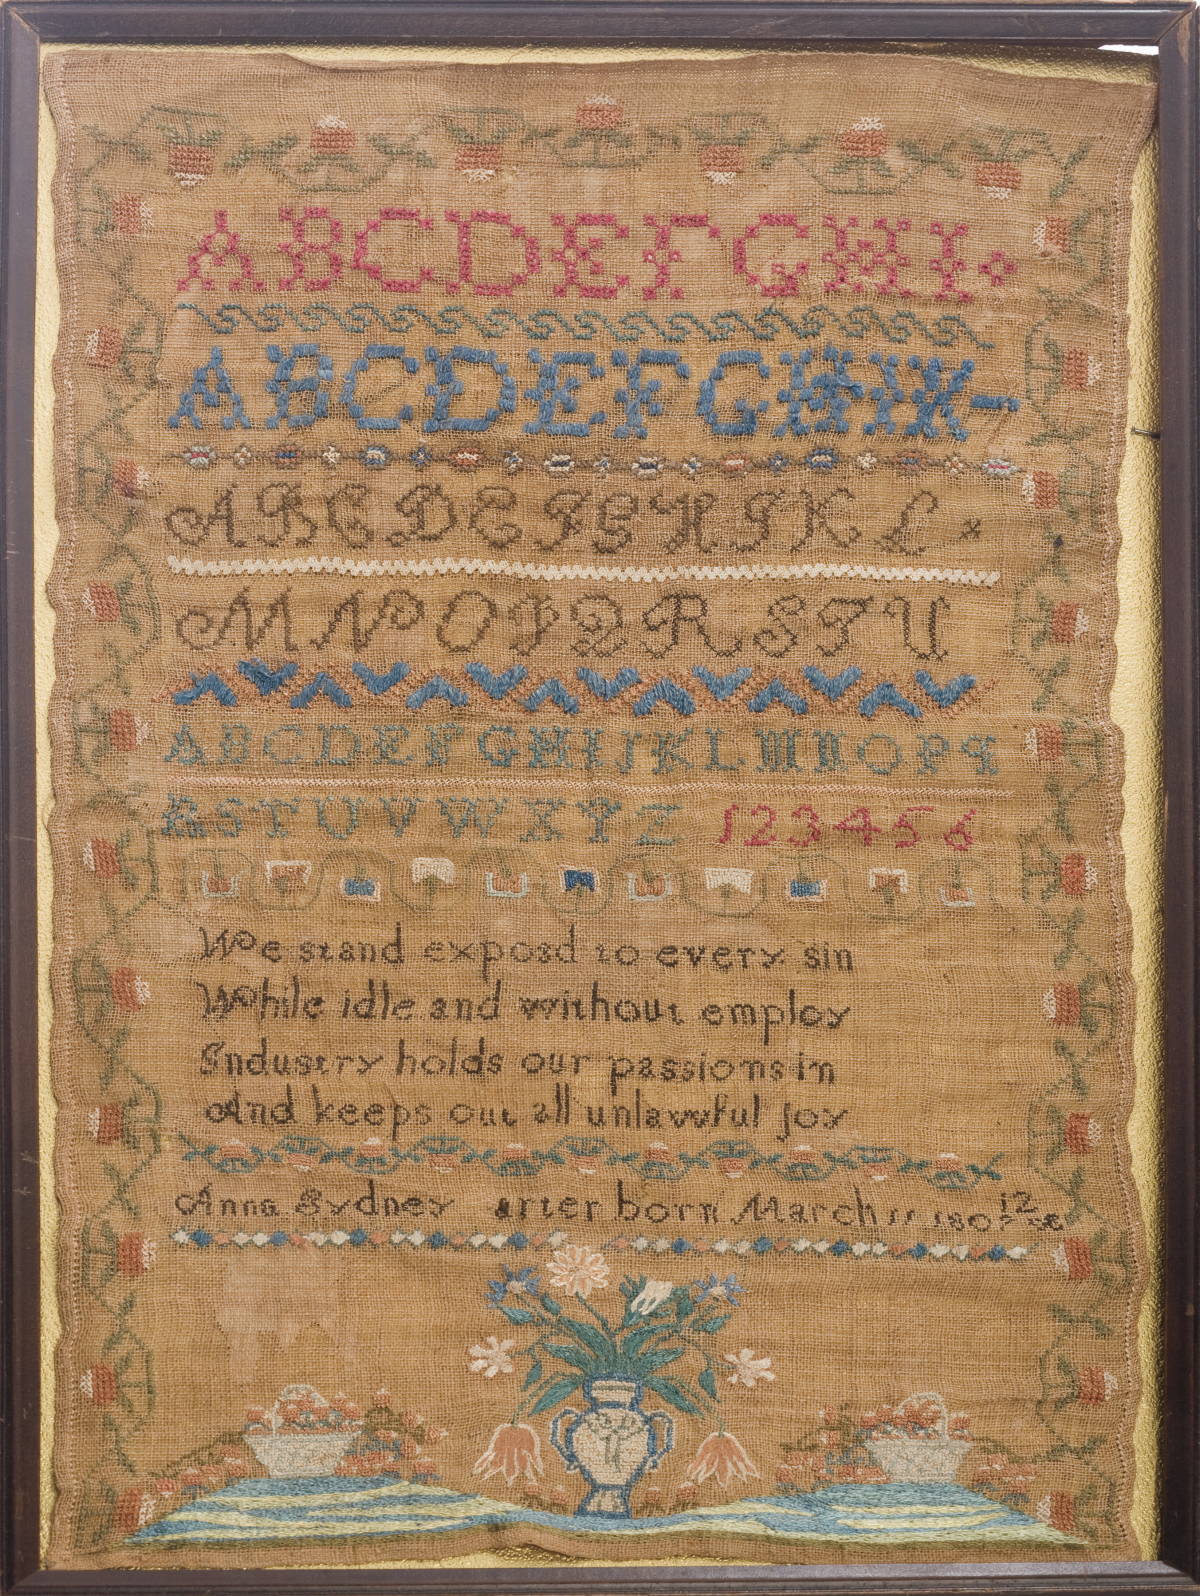 ABCDEFGHI
ABCDEFGHIK
ABCDEFGHIKL
MNOPQRSTU
ABCDEFGHIJKLMNOPq
RSTUVWXYZ 123456
We stand exposd to every sin
While idle and without employ
Industry holds our passions in
And keeps out all unlawful joy
Anna Sydney arter born March 11 180